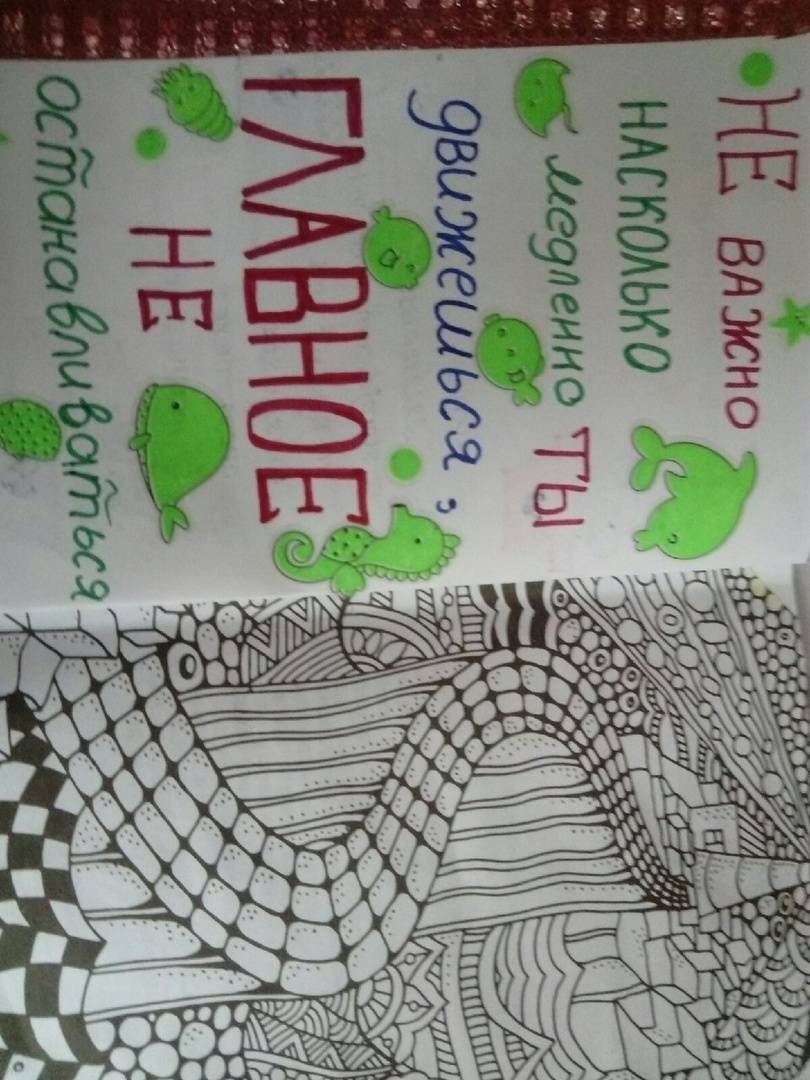 НЕ ВАЖНО
НАСКОЛЬКО
медленно ТЫ
движешься,
ГЛАВНОЕ
НЕ
останавливаться